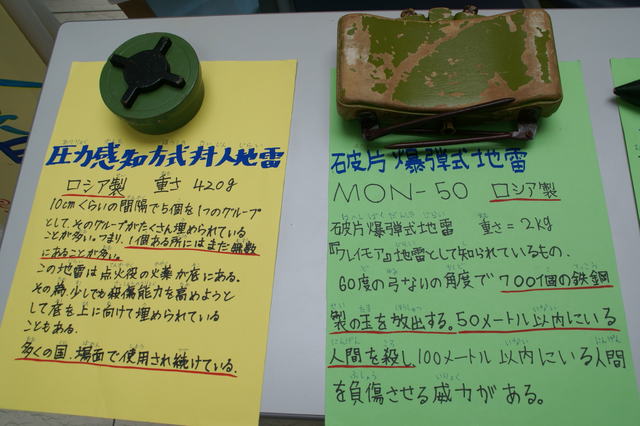 圧力感知方式対人地雷
ロシア製 重さ 420g
10cmくらいの間隔で5個を1つのグループ
として、そのグループがたくさん埋められている
ことが多い。つまり、1個ある所にはまだ無数
にあることが多い。
この地雷は点火役の火薬が底にある。
その為、少しでも殺傷能力を高めようと
して底を上に向けて埋められている
こともある。
多くの国、場面で使用され続けている。
破片爆弾式地雷
MON-50 ロシア製
破片爆弾式地雷 重さ=2kg
『クレイモア』地雷として知られているもの。
60度の弓ないの角度で700個の鉄鋼
製の玉を放出する。50メートル以内にいる
人間を殺し、100メートル以内にいる人間
を負傷させる威力がある。